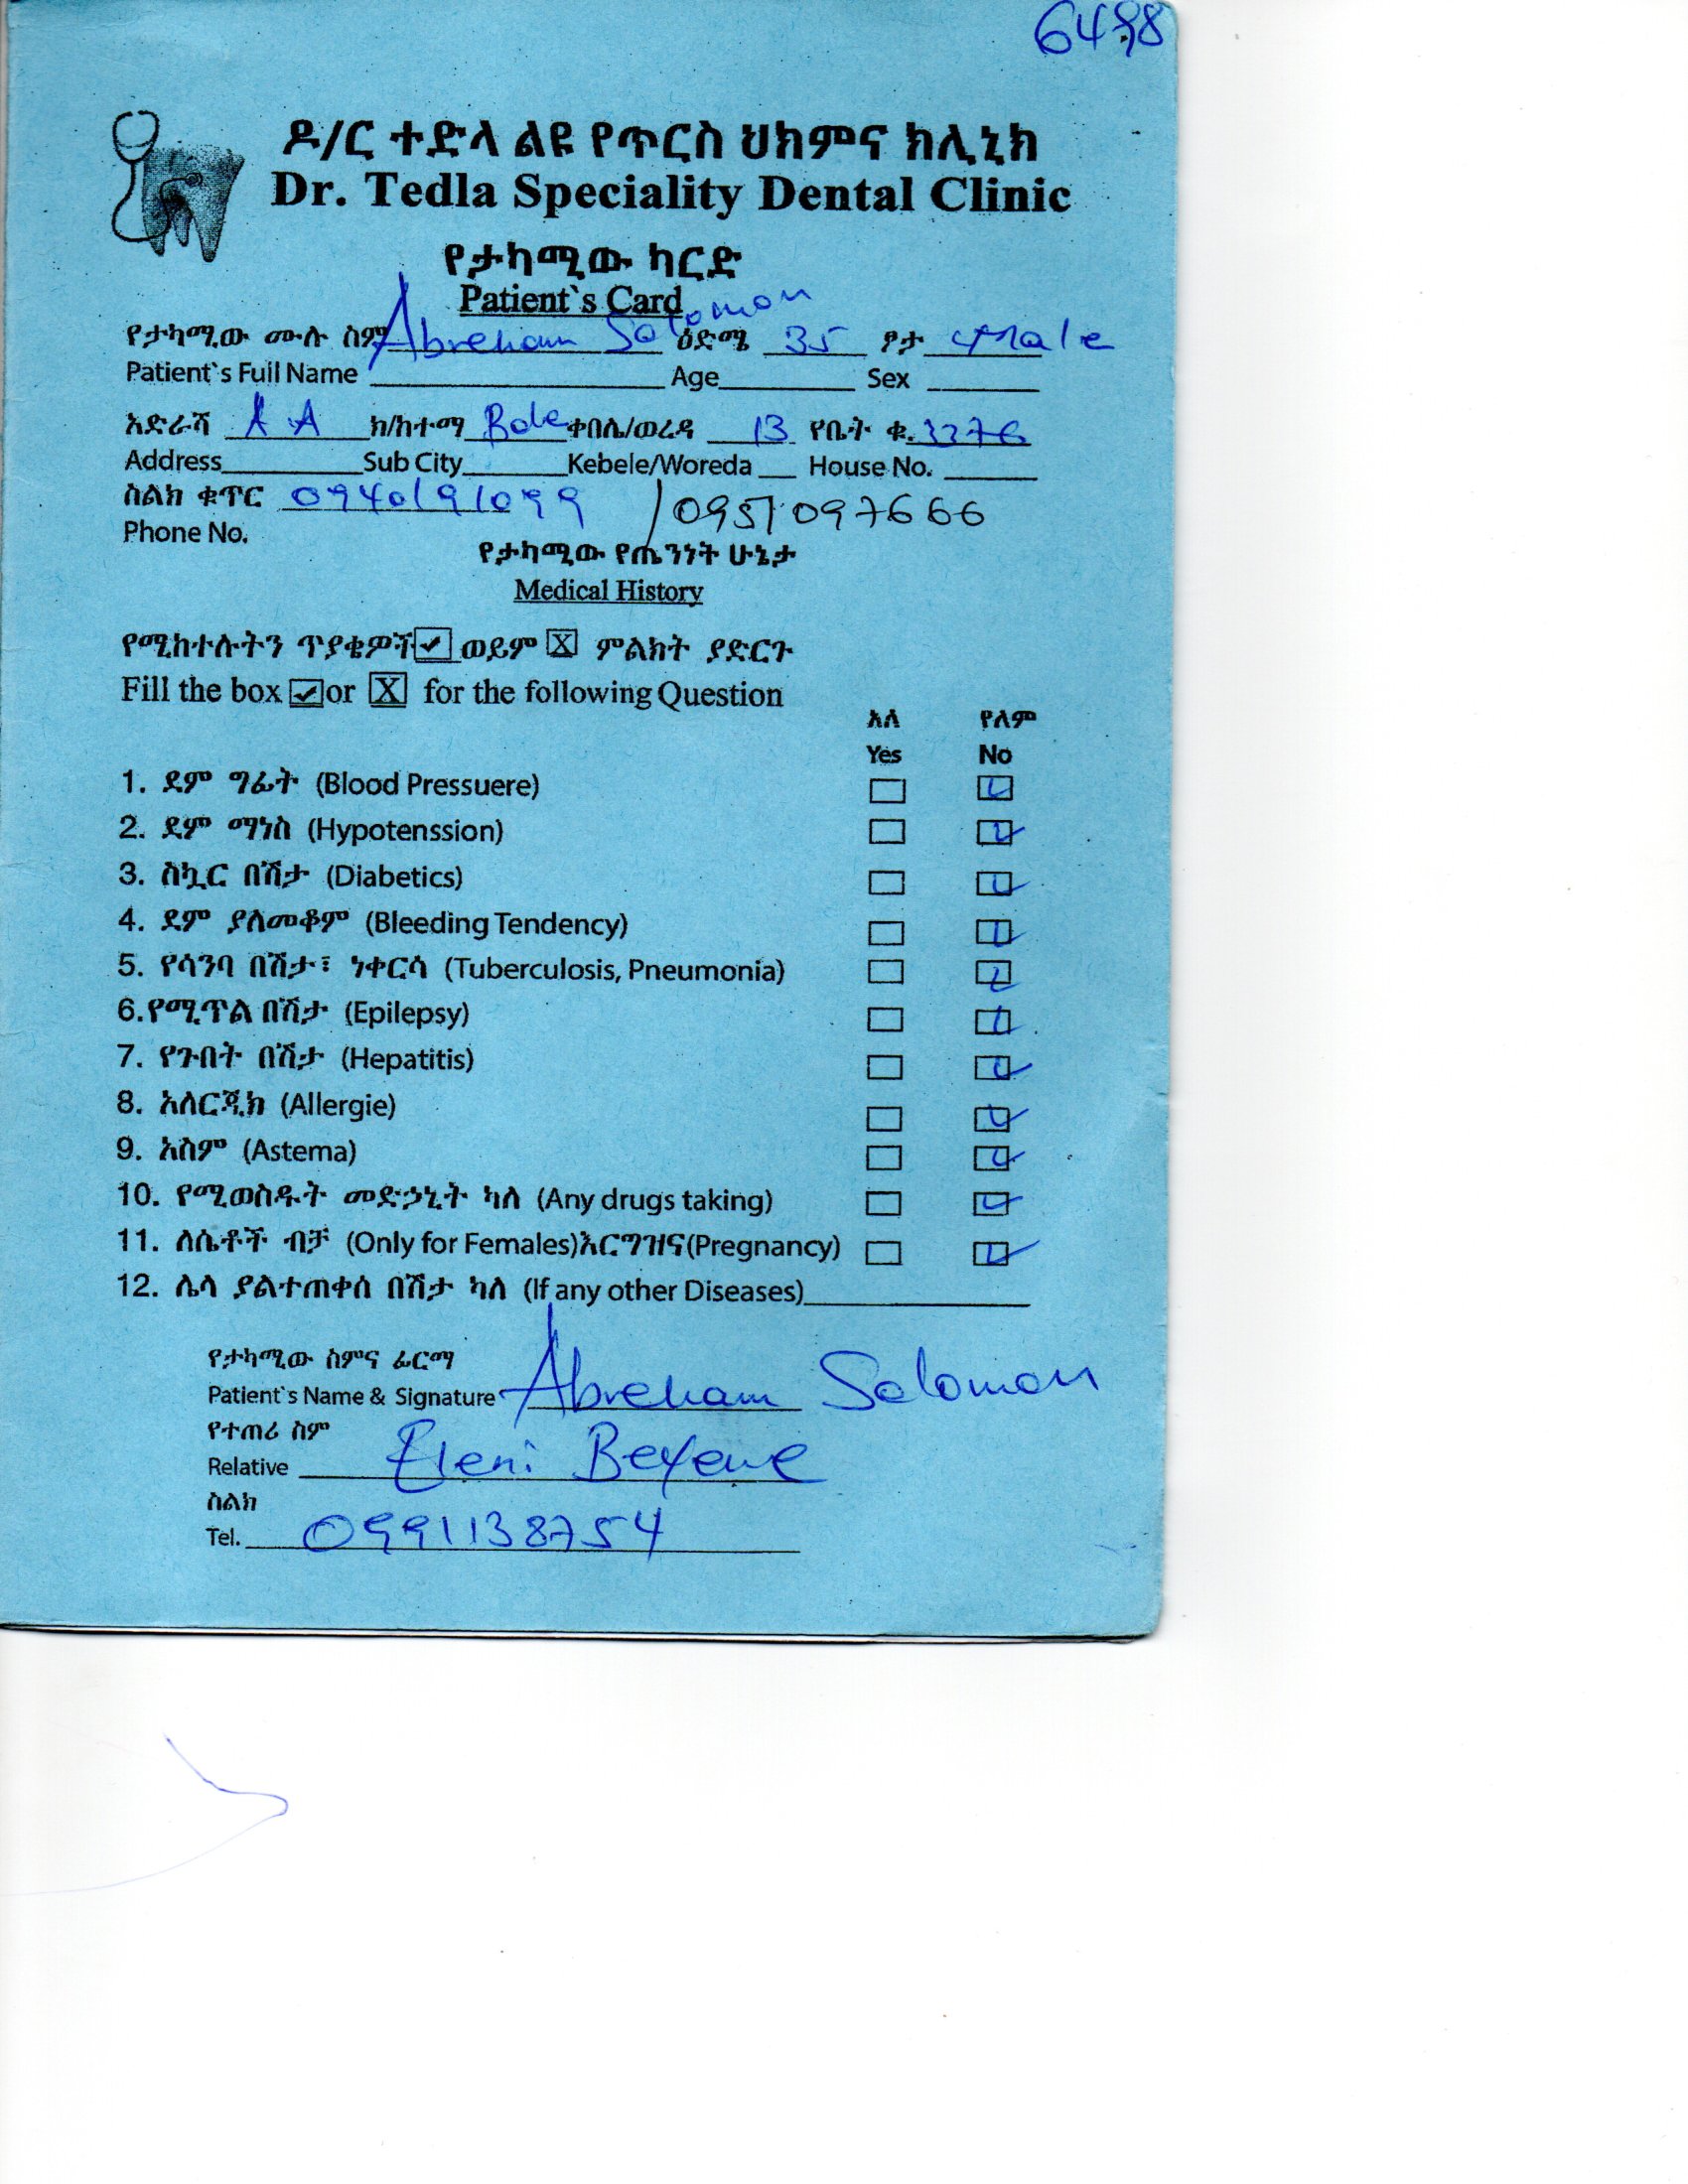 ዶ/ር ተድላ ልዩ የጥርስ ህክምና ክሊኒክ
Dr. Tedla Speciality Dental Clinic
የታካሚው ካርድ
Patient`s Card
የታካሚው ሙሉ ስም Abreham Solomon ዕድሜ 35 ፆታ Male
Patient`s Full Name Age Sex
አድራሻ A A ክ/ከተማ Bole ቀበሌ/ወረዳ 13 የቤት ቁ. 3376
Address Sub City Kebele/Woreda House No.
ስልክ ቁጥር 0940191099 /0951097666
Phone No.
የታካሚው የጤንነት ሁኔታ
Medical History
የሚከተሉትን ጥያቄዎች ✓ ወይም X ምልክት ያድርጉ
Fill the box ✓ or X for the following Question
አለ የለም
Yes No
1. ደም ግፊት (Blood Pressuere) ☐ ☑
2. ደም ማነስ (Hypotenssion) ☐ ☑
3. ስኳር በሽታ (Diabetics) ☐ ☑
4. ደም ያለመቆም (Bleeding Tendency) ☐ ☑
5. የሳንባ በሽታ፣ ነቀርሳ (Tuberculosis, Pneumonia) ☐ ☑
6.የሚጥል በሽታ (Epilepsy) ☐ ☑
7. የጉበት በሽታ (Hepatitis) ☐ ☑
8. አለርጂክ (Allergie) ☐ ☑
9. አስም (Astema) ☐ ☑
10. የሚወስዱት መድኃኒት ካለ (Any drugs taking) ☐ ☑
11. ለሴቶች ብቻ (Only for Females)እርግዝና(Pregnancy) ☐ ☑
12. ሌላ ያልተጠቀሰ በሽታ ካለ (If any other Diseases)
የታካሚው ስምና ፊርማ
Patient`s Name & Signature Abreham Solomon
የተጠሪ ስም
Relative Eleni Beyene
ስልክ
Tel. 0991138754